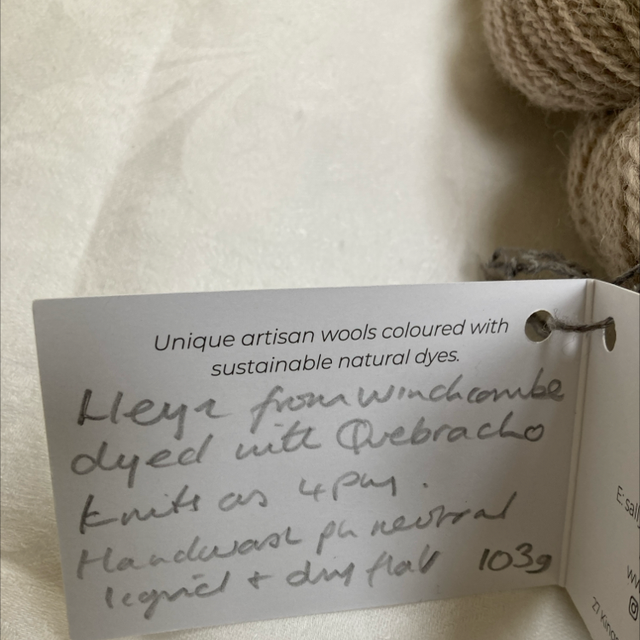 Unique artisan wools coloured with
sustainable natural dyes.
from Winchcombe
dyed with Quebracho
Knits as 4 ply.
Handwash ph neutral
liquid + dry flat 103g
E:sall